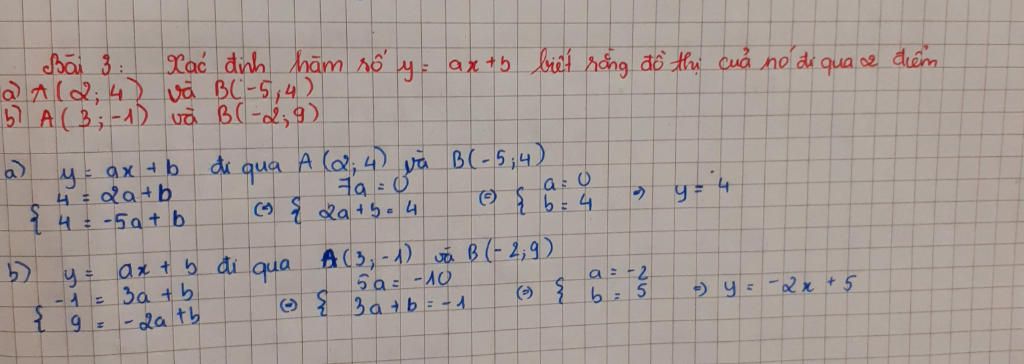 Bài 3: Xác định hàm số y = ax+b biết rằng đồ thị của nó đi qua 2 điểm
a) A(2; 4) và B(-5; 4)
b) A(3; -1) và B(-2; 9)
a) y = ax + b đi qua A(2; 4) và B(-5; 4)
{ 4 = 2a + b (=) { 7a = 0 (=) { a = 0 => y = 4
4 = -5a + b 2a + b = 4 b = 4
b) y = ax + b đi qua A(3; -1) và B(-2; 9)
{ -1 = 3a + b (=) { 5a = -10 (=) { a = -2 => y = -2x + 5
9 = -2a + b 3a + b = -1 b = 5